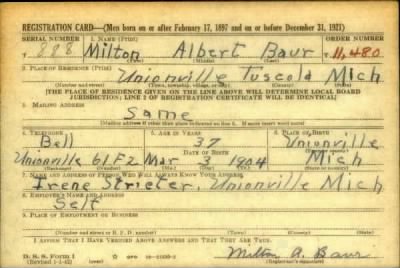 REGISTRATION CARD—(Men born on or after February 17, 1897 and on or before December 31, 1921)
SERIAL NUMBER 1. NAME (Print) ORDER NUMBER
T 888 Milton Albert Baur T 11,480
(First) (Middle) (Last)
2. PLACE OF RESIDENCE (Print)
Unionville Tuscola Mich
(Number and street) (Town, township, village, or city) (County) (State)
[THE PLACE OF RESIDENCE GIVEN ON THE LINE ABOVE WILL DETERMINE LOCAL BOARD
JURISDICTION; LINE 2 OF REGISTRATION CERTIFICATE WILL BE IDENTICAL]
3. MAILING ADDRESS
Same
(Mailing address if other than place indicated on line 2. If same insert word same)
4. TELEPHONE 5. AGE IN YEARS 6. PLACE OF BIRTH
Bell 37 Unionville
DATE OF BIRTH (Town or county)
Unionville 61F2 Mar 3 1904 Mich
(Exchange) (Number) (Mo.) (Day) (Yr.) (State or country)
7. NAME AND ADDRESS OF PERSON WHO WILL ALWAYS KNOW YOUR ADDRESS
Irene Strieter, Unionville Mich
8. EMPLOYER'S NAME AND ADDRESS
Self
9. PLACE OF EMPLOYMENT OR BUSINESS
(Number and street or R. F. D. number) (Town) (County) (State)
I AFFIRM THAT I HAVE VERIFIED ABOVE ANSWERS AND THAT THEY ARE TRUE.
D. S. S. Form 1
(Revised 1-1-42) (over) Milton A. Baur